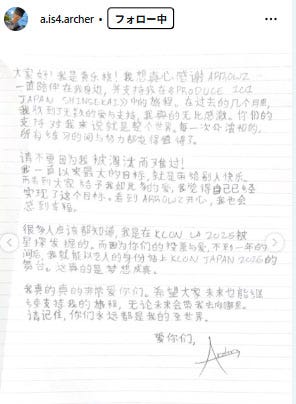 a.is4.archer • フォロー中
大家好！我是黄乐熊！我想真心感谢ARROWZ
一直陪伴在我身边，并支持我在《PRODUCE 101
JAPAN SHINSEKAI》中的旅程。在过去的几个月里，
我收到了无数的爱与支持，我真的无比感激。你们的
支持对我来说就是整个世界。每一次的
所有练习的时间与努力都变得值得了。
请不要因为我被淘汰而难过！
我一直以来最大的目标，就是带给别人快乐。
而看到大家给予我如此多的爱，我觉得自己已经
实现了这个目标。看到ARROWZ开心，我也会
感到幸福。
很多人应该都知道，我是在KCON LA 2025被
星探发掘的。而因为你们的投票与爱，不到一年的
时间后，我就能以艺人的身份站上KCON JAPAN 2026的
舞台。这真的是梦想成真。
我真的真的非常爱你们。希望大家未来也能继
续支持我的旅程，无论未来会带我去向哪里。
请记住，你们永远都是我的全世界。
爱你们，
Archer